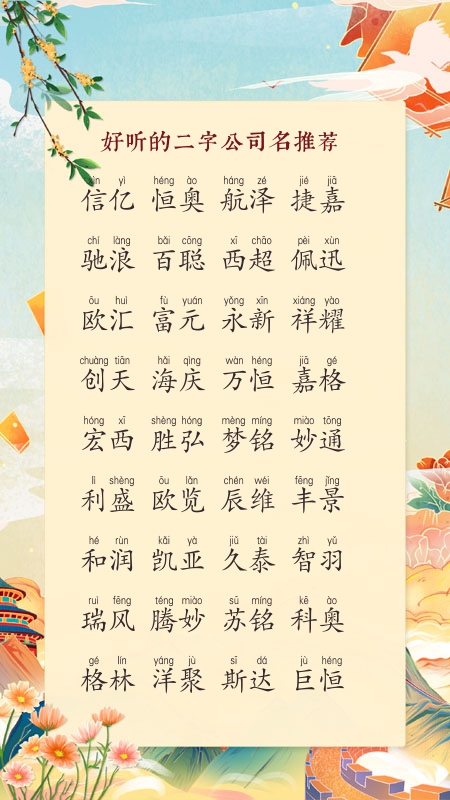 好听的二字公司名推荐
xìn yì héng ào háng zé jié jiā
信亿 恒奥 航泽 捷嘉
chí làng bǎi cōng xī chāo pèi xùn
驰浪 百聪 西超 佩迅
ōu huì fù yuán yǒng xīn xiáng yào
欧汇 富元 永新 祥耀
chuàng tiān hǎi qìng wàn héng jiā gé
创天 海庆 万恒 嘉格
hóng xī shèng hóng mèng míng miào tōng
宏西 胜弘 梦铭 妙通
lì shèng ōu lǎn chén wéi fēng jǐng
利盛 欧览 辰维 丰景
hé rùn kǎi yà jiǔ tài zhì yǔ
和润 凯亚 久泰 智羽
ruì fēng téng miào sū míng kē ào
瑞风 腾妙 苏铭 科奥
gé lín yáng jù sī dá jù héng
格林 洋聚 斯达 巨恒